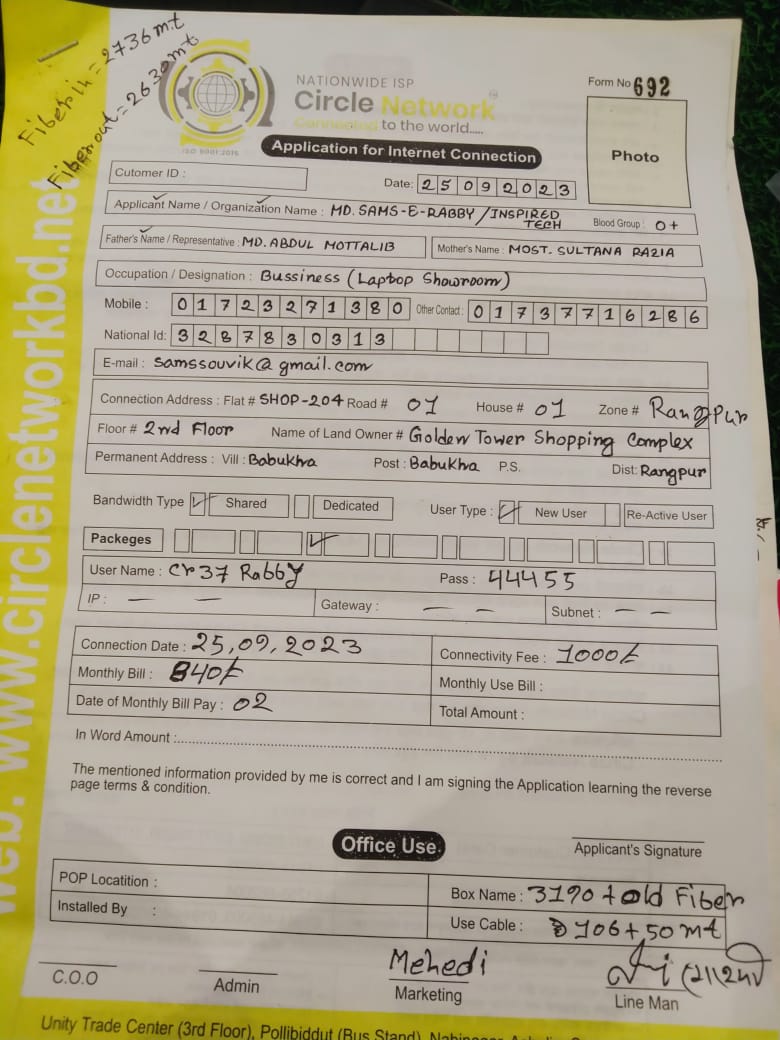 Fiber in = 2736 mt
Fiber out = 2630 mt
NATIONWIDE ISP
Circle Network
Connected to the world.....
ISO 9001:2015
Form No 692
Photo
Application for Internet Connection
Cutomer ID :
Date: 25092023
Applicant Name / Organization Name : MD. SAMS-E-RABBY / INSPIRED TECH Blood Group : O+
Father's Name / Representative : MD. ABDUL MOTTALIB Mother's Name : MOST. SULTANA RAZIA
Occupation / Designation : Bussiness (Laptop Showroom)
Mobile : 01723271380 Other Contact : 01737716286
National Id: 3287830313
E-mail : samssouvik@gmail.com
Connection Address : Flat # SHOP-204 Road # 01 House # 01 Zone # Rangpur
Floor # 2nd Floor Name of Land Owner # Golden Tower Shopping Complex
Permanent Address : Vill : Babukha Post : Babukha P.S. Dist: Rangpur
Bandwidth Type Shared Dedicated User Type : New User Re-Active User
Packeges
User Name : cr37 Rabby Pass : 44455
IP : — — Gateway : — — Subnet : — —
Connection Date : 25,09,2023 Connectivity Fee : 1000/-
Monthly Bill : 840/- Monthly Use Bill :
Date of Monthly Bill Pay : 02 Total Amount :
In Word Amount :
The mentioned information provided by me is correct and I am signing the Application learning the reverse
page terms & condition.
Office Use
Applicant's Signature
POP Locatition : Box Name : 3190 + Old Fiber
Installed By : Use Cable : 106+50 mt
Mehedi
C.O.O Admin Marketing Line Man
Unity Trade Center (3rd Floor), Pollibiddut (Bus Stand),
web: www.circlenetworkbd.net